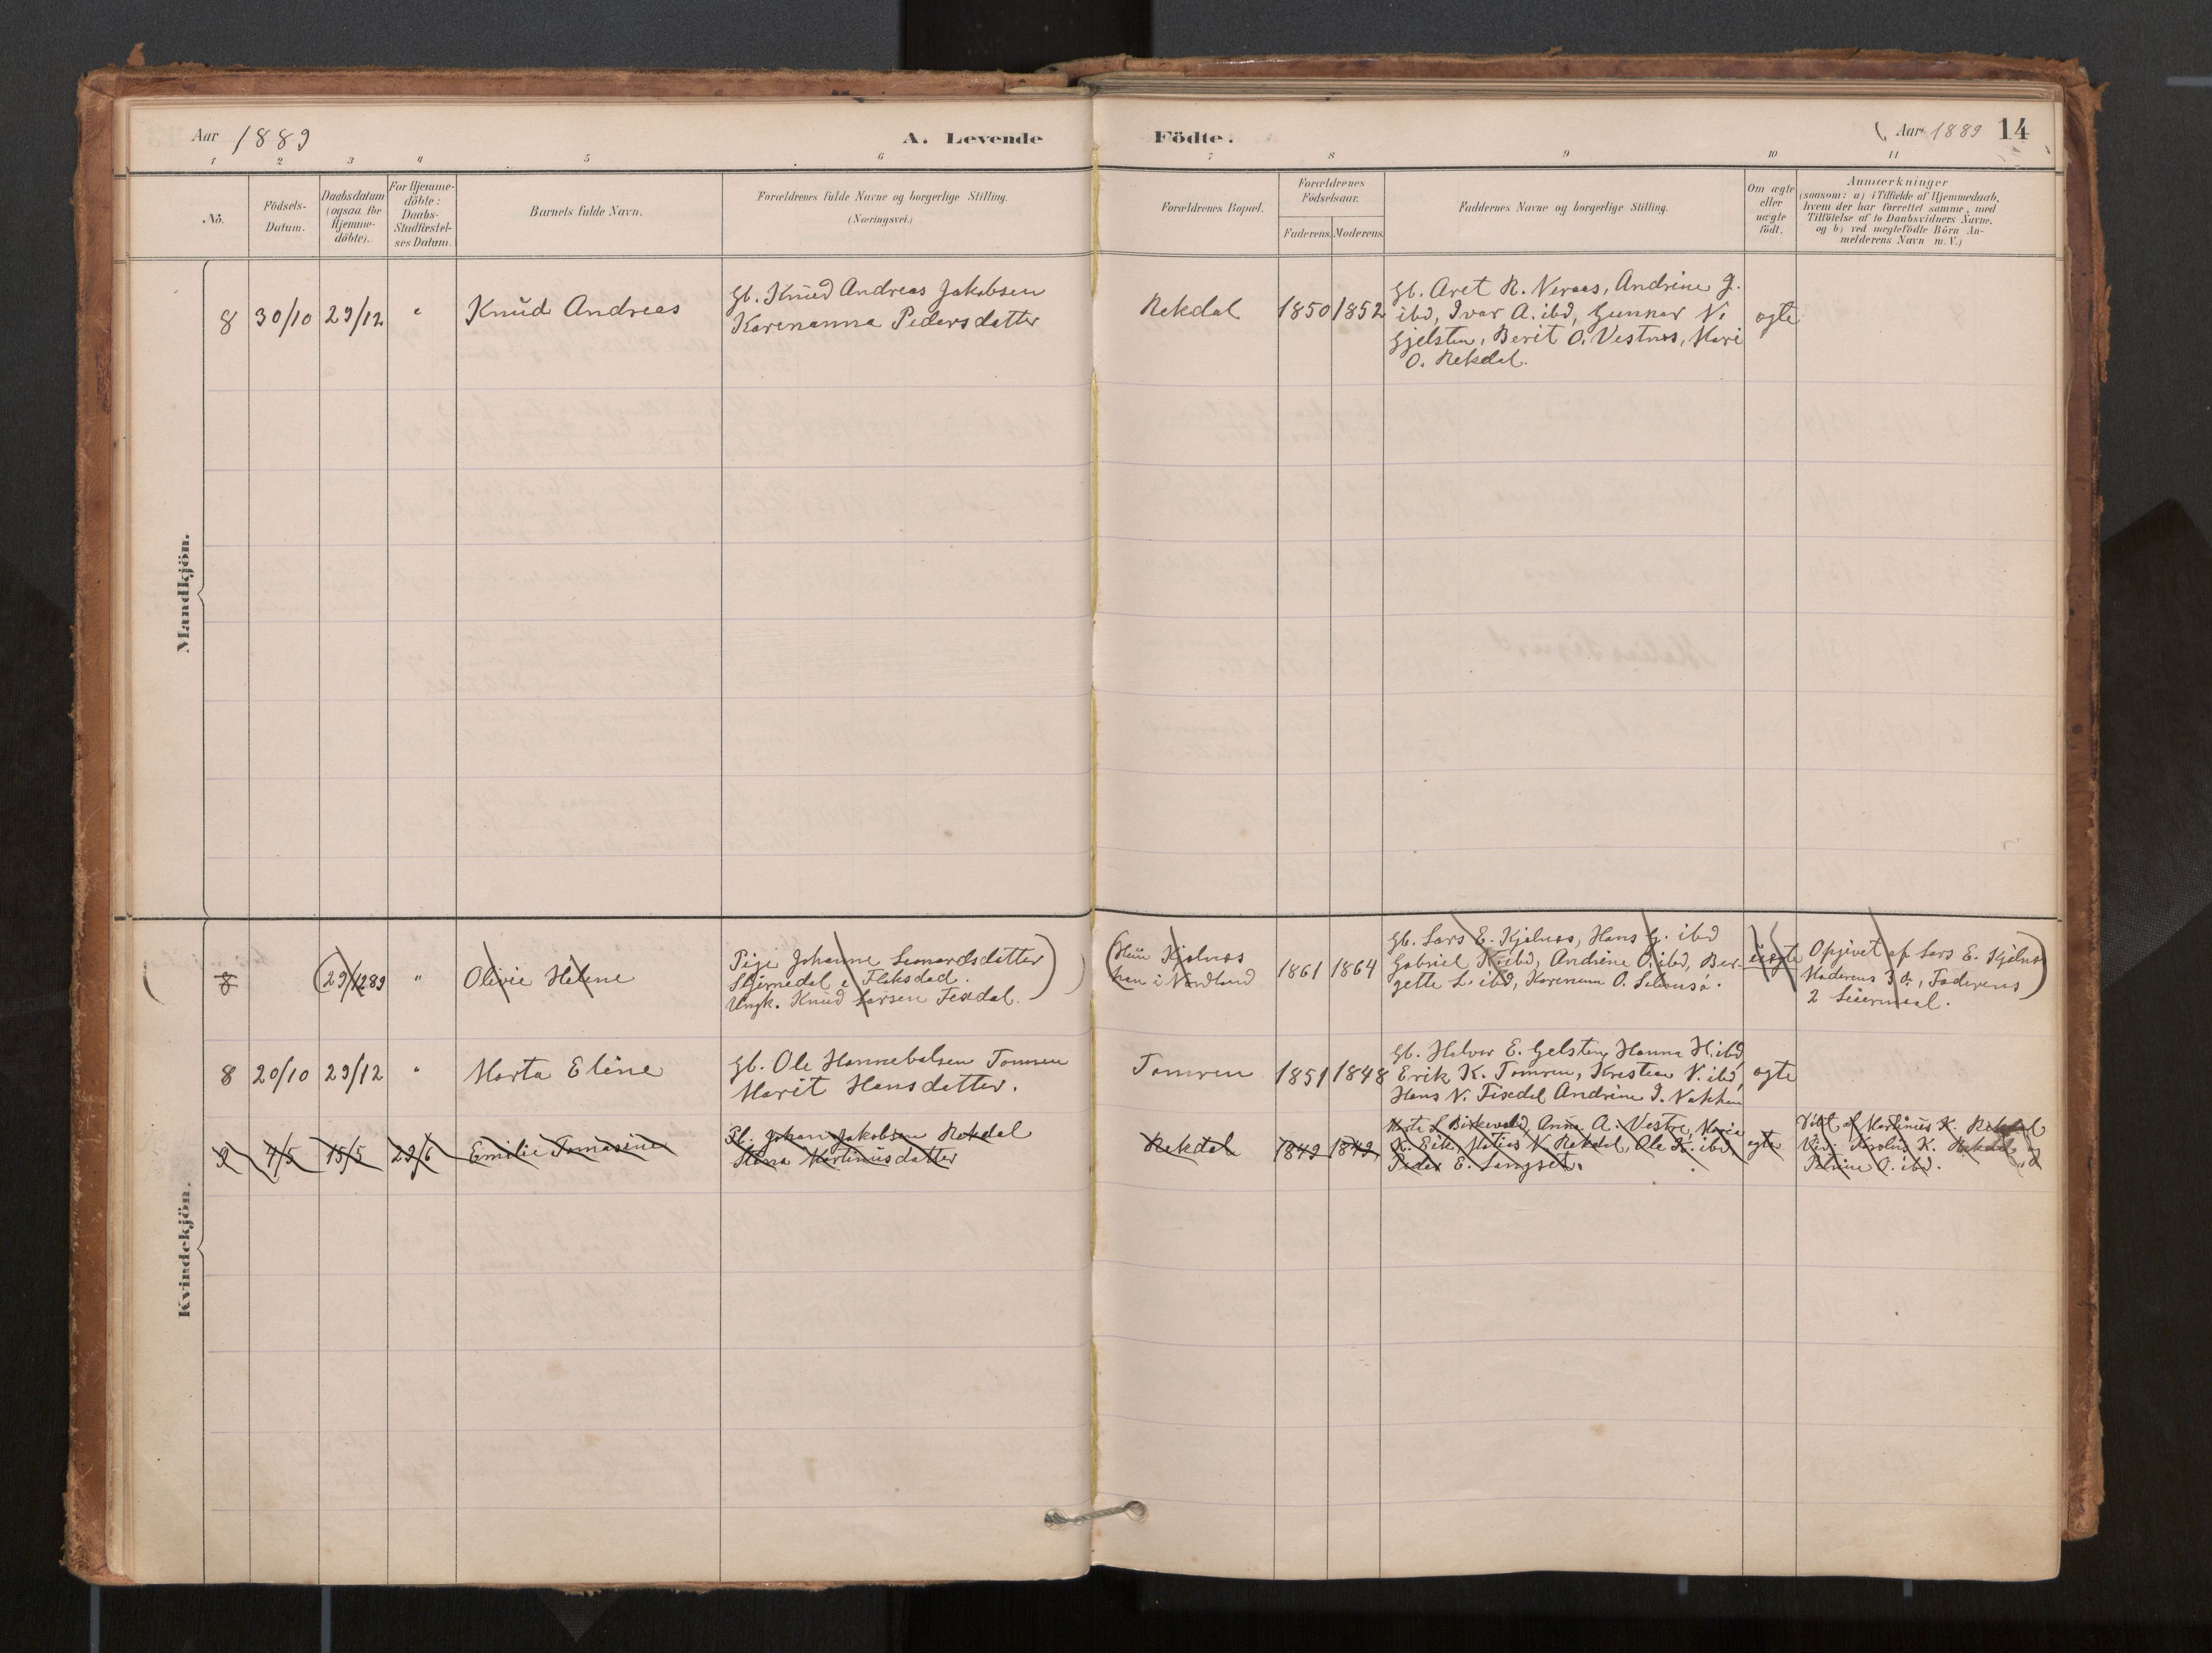 Aar 1889
A. Levende Födte.
Aar 1889 14
1 2 3 4 5 6 7 8 9 10 11
No. Födsels-Datum. Daabsdatum (ogsaa for Hjemme-döbte). For Hjemme-döbte: Daabs-Stadfæstel-ses Datum. Barnets fulde Navn. Forældrenes fulde Navne og borgerlige Stilling. (Næringsvei.) Forældrenes Bopæl. Forældrenes Födselsaar. Faderens. Moderens. Faddernes Navne og borgerlige Stilling. Om ægte eller uægte födt. Anmærkninger
(saasom: a) i Tilfælde af Hjemmedaab,
hvem der har forrettet samme, med
Tilföielse af to Daabsvidners Navne.
og b) ved uægtefödte Börn An-
melderens Navn m. V.)
Mandkjön.
8 30/10 29/12 " Knud Andreas
Gb. Knud Andreas Jakobsen
Karenanna Pedersdatter
Rekdal 1850 1852
Gb. Aret R. Veraas, Andrine J.
ibd, Ivar A. ibd, Gunnar N.
Gjelsten, Berit O. Vestnes, Mari
O. Rekdal.
ægte
Kvindekjön.
8 (29/12 89 " Olivie Helene
Pige Johanne Leonardsdatter
Stjernedal i Flaksdad.
Ungk. Knud Larsen Fixdal.)
(Hun Kjelnæs
han i Nordland
1861 1864
Gb. Lars E. Kjelnæs, Hans G. ibd
Gabriel K. ibd, Andrine O. ibd, Ber-
gette L. ibd, Karenanna O.
uægte
Opgivet af Lars E. Kjelnæs
Moderens 3 die, Faderens
2 Leiermaal.)
8 20/10 29/12 " Marta Eline
Gb. Ole Hannebalsen Tomren
Marit Hansdatter.
Tomren 1851 1848
Gb. Halvor E. Gelsten, Hanna H. ibd,
Erik K. Tomren, Kristian N. ibd,
Hans N. Fixdal Andrine J. Nakken
ægte
9 4/5 15/5 29/6 Emilie Tomasine
Pl. Johan Jakobsen Rekdal
Stina Martinusdatter
Rekdal 1849 1849
Marte L Birkevold, Anna A. Vestre, Marie
K. Eik, Matias N Rekdal, Ole K. ibd,
Peder E. Langset.
ægte
Döbt af Martinus K. Rekdal
Vid. Karolius K. Rekdal og
Petrine O. ibd.